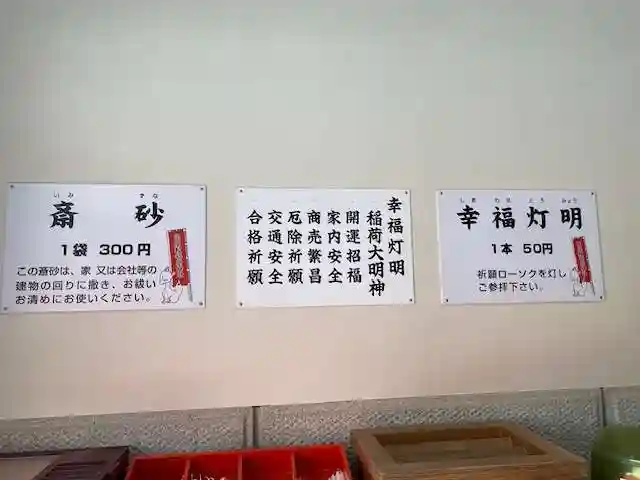 いみ すな
斎 砂
1袋 300円
この斎砂は、家 又は会社等の
建物の回りに撒き、お祓い
お清めにお使いください。
幸福灯明
稲荷大明神
開運招福
家内安全
商売繁昌
厄除祈願
交通安全
合格祈願
しあ わせ とう みょう
幸福灯明
1本 50円
祈願ローソクを灯し
ご参拝下さい。